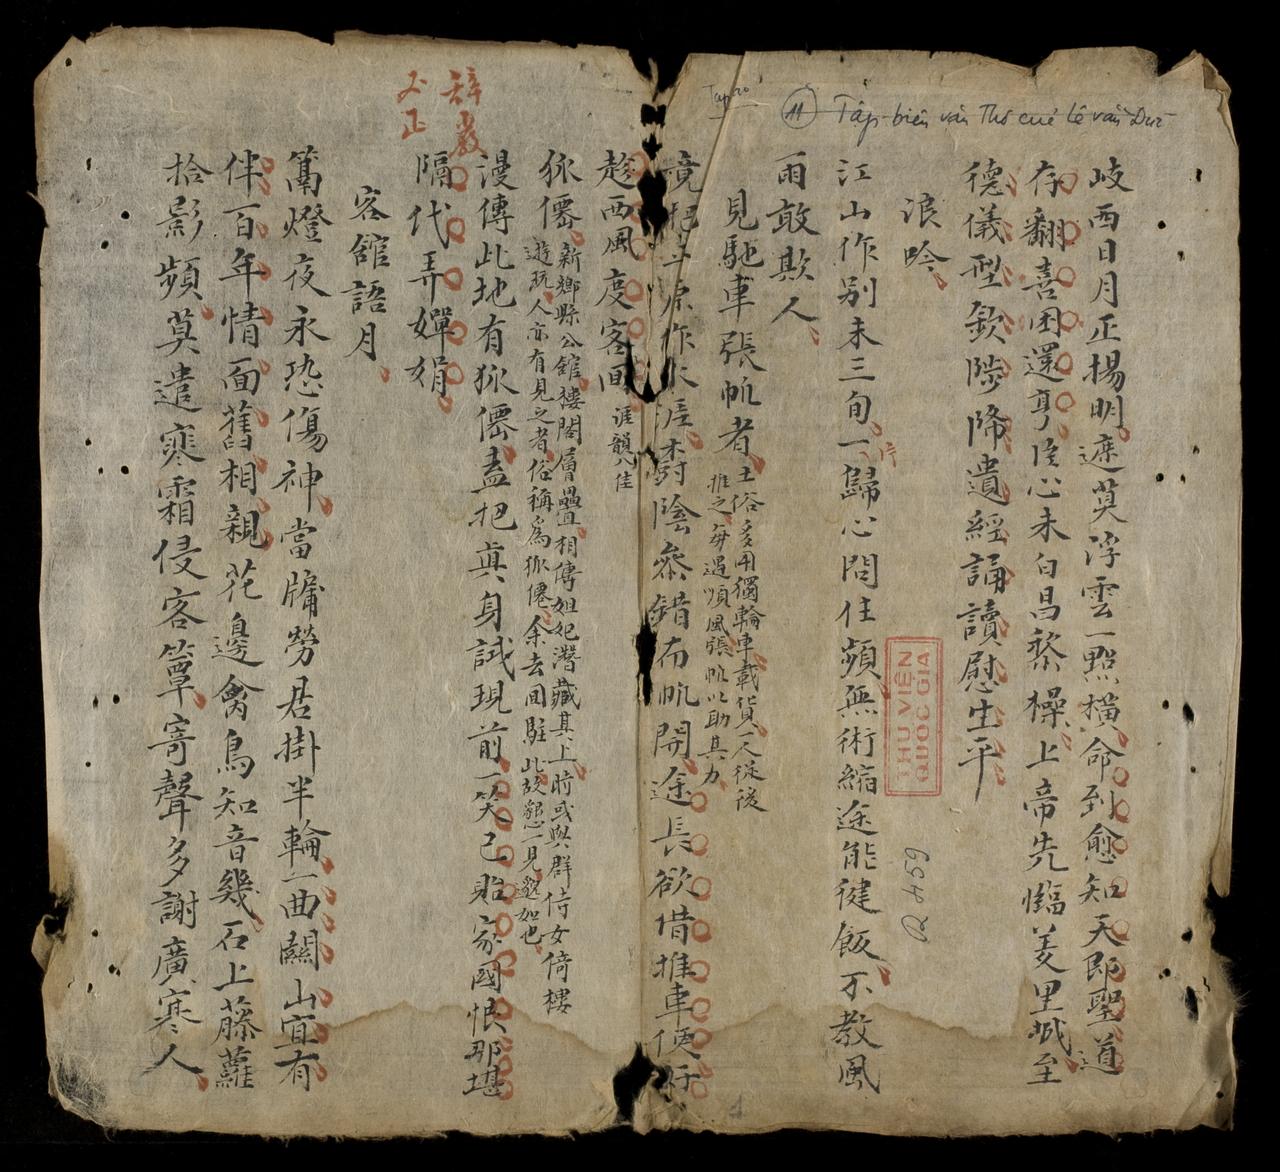 Tập biên văn Thơ cuả Lê văn Đưc
11
岐西日月正揚明遮莫浮雲一點橫命到愈知天即聖道
存翻喜困還亨臣心未白昌黎操上帝先臨羑里城至
德儀型欽陟降遺經誦讀慰生平
浪吟
江山作別未三旬一片歸心問住頻無術縮途能健飯不教風
雨敢欺人
見馳車張帆者
土俗多用獨輪車載貨一人從後
推之每遇順風張帆以助其力
境把 原作水涯樹陰參錯布帆開途長欲借推車便好
趁西風度客回
涯韻佳
狐僊
新鄉縣公館樓閣層疊相傳妲妃潛藏其上時或與群侍女倚樓
遊玩人亦有見之者俗稱為狐僊余去回駐此故懇一見 如也
漫傳此地有狐僊盍把真身試現前一笑已貽家國恨那堪
隔代弄嬋娟
辭嚴
義正
客館語月
篝燈夜永恐傷神當牖勞君掛半輪一曲關山宜有
伴百年情面舊相親花邊禽鳥知音幾石上藤蘿
拾影頻莫遣寒霜侵客簟寄聲多謝廣寒人
THƯ VIỆN
QUỐC GIA
R 459